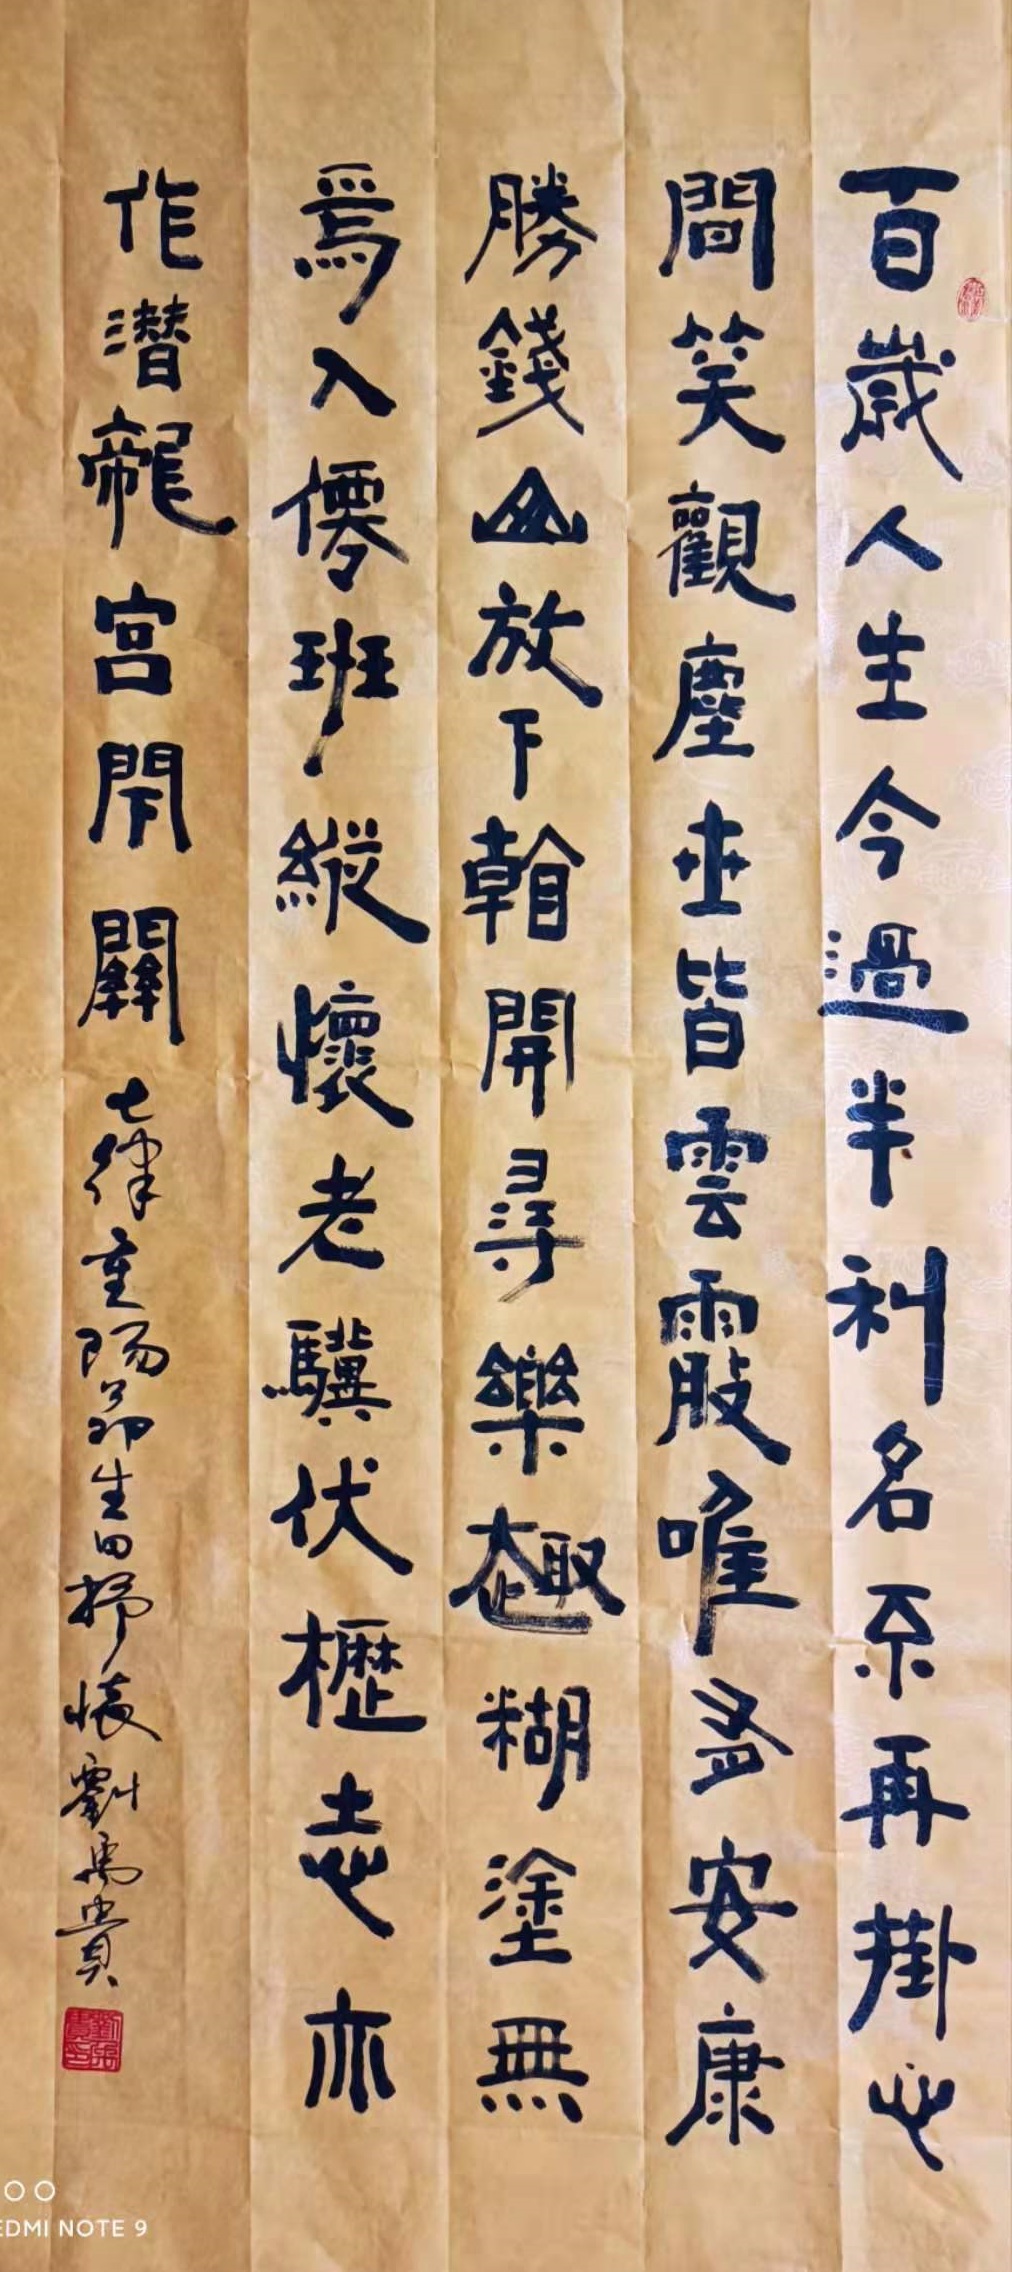 百歲人生今過半利名不再掛心
間笑觀塵世皆雲霞唯盈安康
勝錢山放下看開尋樂趣糊塗無
爲入僊班縱懷老驥伏櫪志亦
作潛龍宮閉關 七律重陽節生日抒懷劉禹貴
EDMI NOTE 9